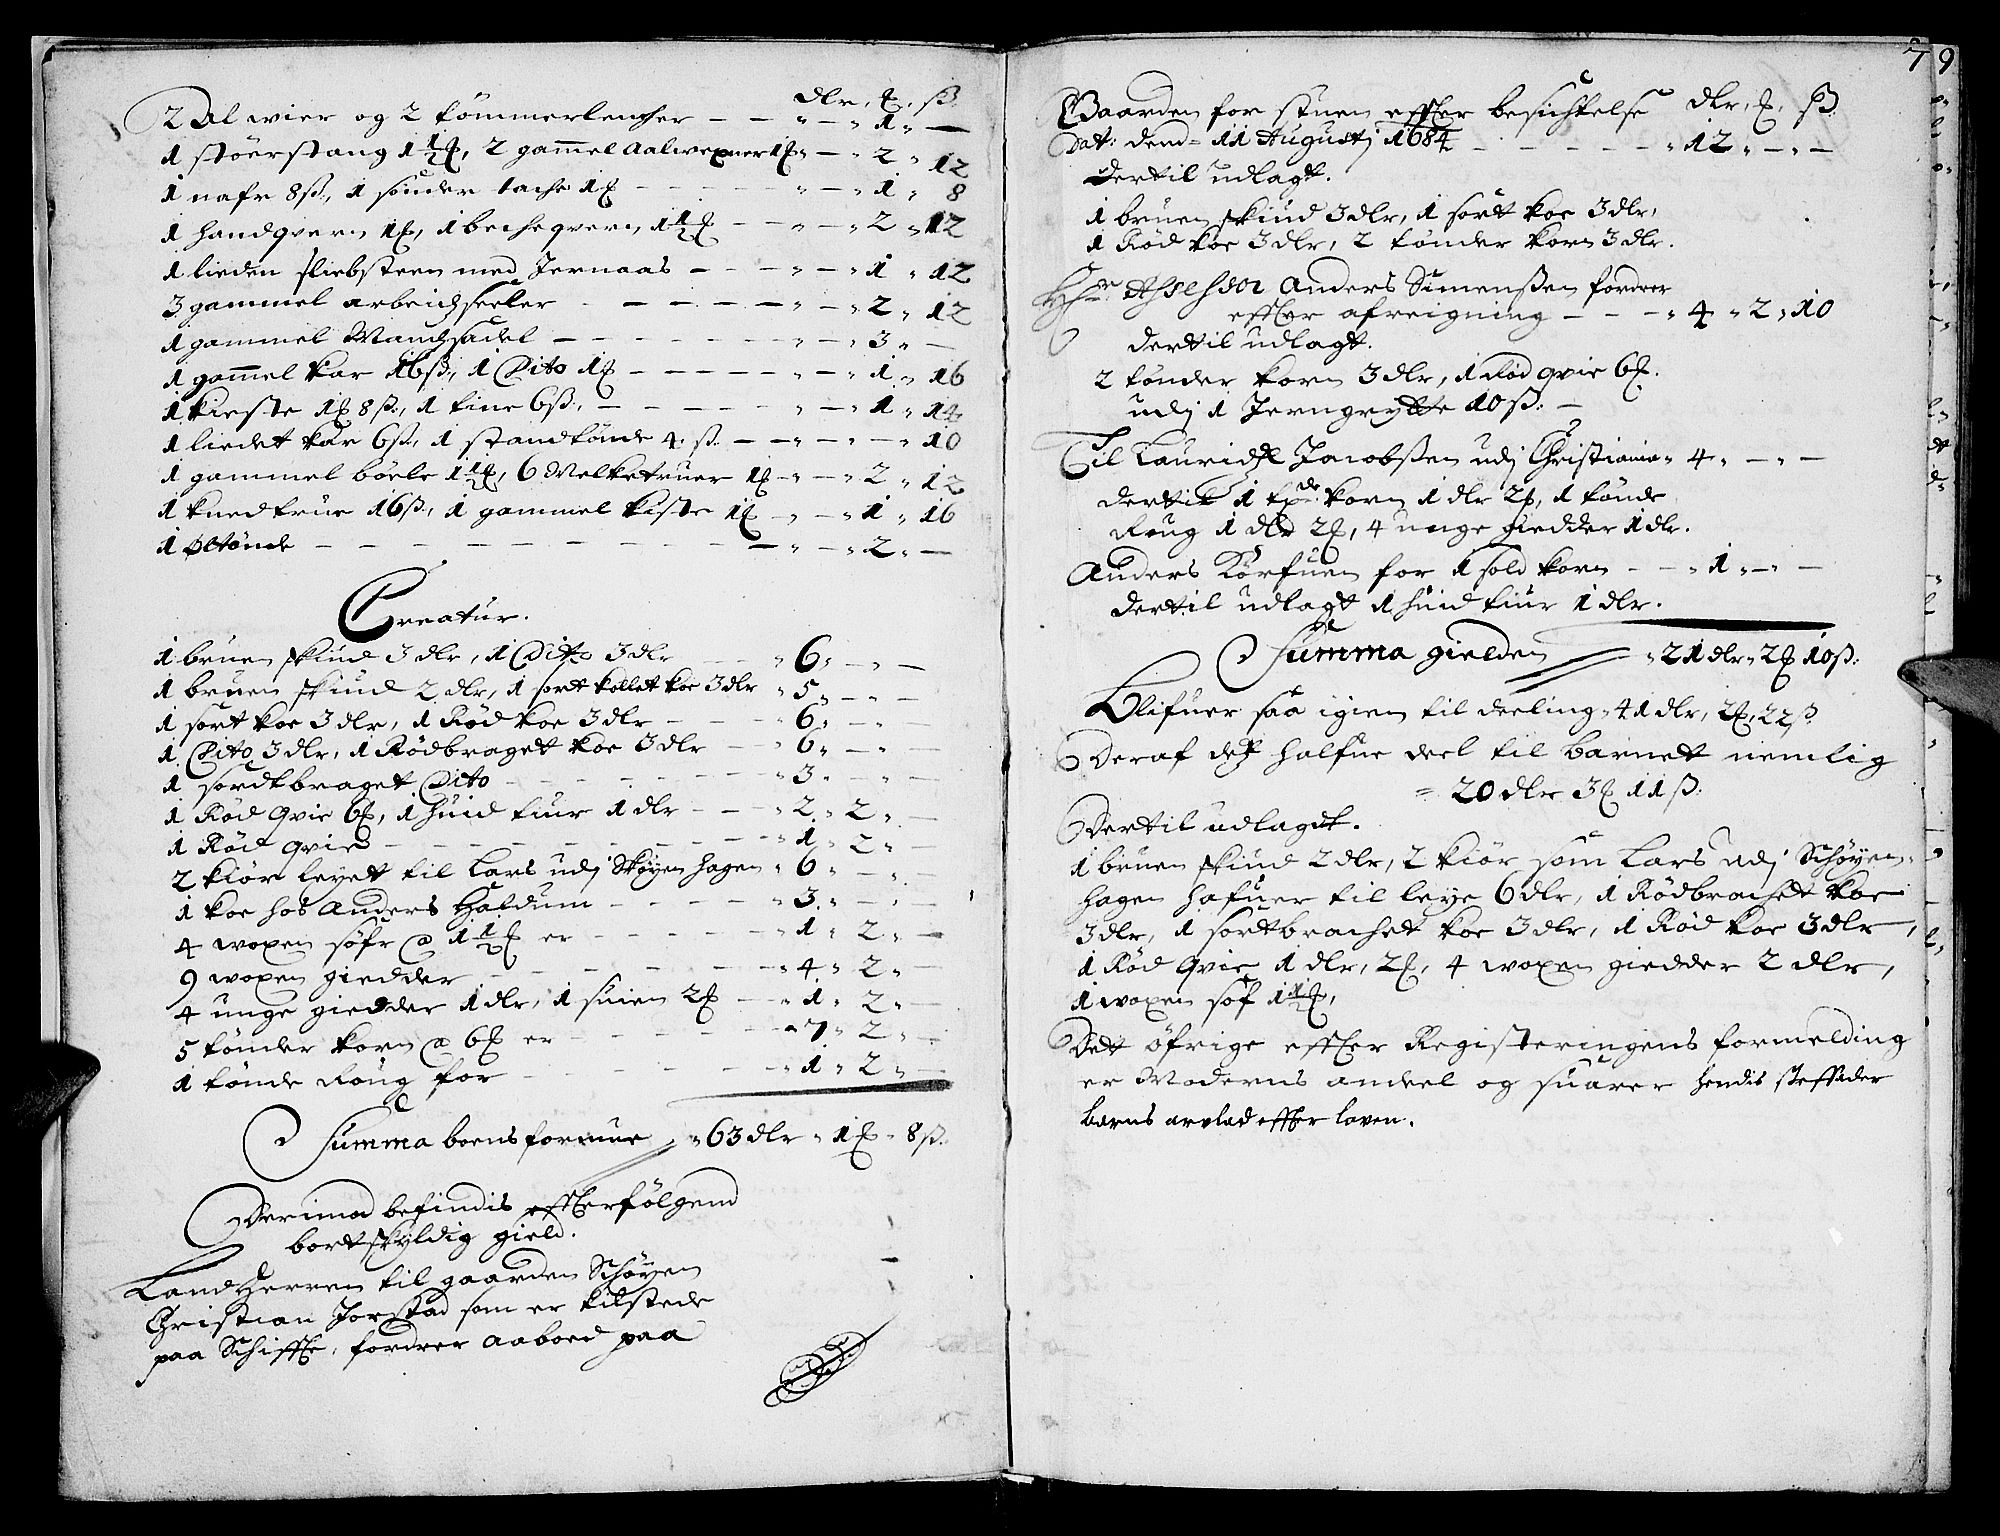 dlr. ƶ. ß
2 Al wier og 2 tömmerlencher — — „ — „ 1 „ —
1 störstang 1½ƶ, 2 gammel Aalwexner 1ƶ „ — „ 2 „ 12
1 nafr 8ß, 1 sönder 1ƶ — „ — „ 1 „ 8
1 handqvern 1ƶ, 1 becheqvern 1½ƶ — „ — „ 2 „ 12
1 lieden sliebsteen med Jernaas — „ — „ 1 „ 12
3 gammel arbeidsseeler — „ — „ 2 „ 12
1 gammel Mandsadel — „ — „ 3 „ —
1 gammel kar 16ß, 1 Dito 1ƶ — „ — „ 1 „ 16
1 kieste 1ƶ 8ß, 1 tine 6ß, — „ — „ 1 „ 14
1 liedet kar 6ß, 1 standtönde 4 ß — „ — „ — „ 10
1 gammel böele 1½ƶ, 6 Melketruer 1ƶ „ — „ 2 „ 12
1 knedtrue 16ß, 1 gammel kiste 1ƶ „ — „ 1 „ 16
1 Öltönde — „ — „ 2 „ —
Creatur.
1 bruen skiud 3 dlr, 1 Dito 3 dlr „ 6 „ — „ —
1 bruen skiud 2 dlr, 1 sort kollet koe 3 dlr „ 5 „ — „ —
1 sort koe 3 dlr, 1 Rød koe 3 dlr — „ 6 „ — „
1 Dito 3 dlr, 1 Rødbraget koe 3 dlr — „ 6 „ — „
1 sordtbraget Dito — „ 3 „ — „ —
1 Rød Qvie 6ƶ, 1 huid tiur 1 dlr — „ 2 „ 2 „ —
1 Rød qvie — „ 1 „ 2 „
2 kiör leyet til Lars udj Skøyen hagen „ 6 „ — „
1 koe hos Anders Haldum — „ 3 „ — „ —
4 woxen söfr @ 1½ƶ er — „ 1 „ 2 „ —
9 woxen giedder — „ 4 „ 2 „ —
4 unge giedder 1 dlr, 1 suien 2ƶ — „ 1 „ 2 „ —
5 tönder korn @ 6ƶ er — „ 7 „ 2 „ —
1 tönde Roug for — „ 1 „ 2 „ —
Summa boens formue „ 63 dlr „ 1ƶ „ 8ß.
Derimod befindis effterfølgend
bortskyldig gield.
Landherren til gaarden Schöyen
Christian Jorstad som er tilstede
paa Schiffte, fordrer aaboed paa
79
Gaarden for stuen effter besichtelse dlr. ƶ. ß.
Dat: dend 11 Augustj 1684 — „ 12 „ — „ —
dertil udlagt.
1 bruen skiud 3 dlr, 1 sort koe 3 dlr,
1 Rød koe 3 dlr, 2 tønder korn 3 dlr.
Hr Assessor Anders Simenssen fordrer
effter afreigning — „ 4 „ 2 „ 10
dertil udlagt.
2 tönder korn 3 dlr, 1 Rød qvie 6ƶ.
udj 1 Jerngrytte 10ß. —
Til Lauridz Jacobssen udj Christiania „ 4 „ — „ —
dertil 1 tønde korn 1 dlr 2ƶ, 1 tönde
Roug 1 dlr 2ƶ, 4 unge giedder 1 dlr.
Anders Körfuen for 1 sold korn — „ 1 „ — „ —
dertil udlagt 1 huid tiur 1 dlr.
Summa gielden „ 21 dlr „ 2ƶ 10ß:
Blifuer saa igien til deeling „ 41 dlr, 2ƶ, 22ß
Deraf dend halfue deel til barnet nemlig
= 20 dlr 3ƶ 11ß:
Dertil udlagdt.
1 bruen skiud 2 dlr, 2 kiör som Lars udj Schöyen-
hagen hafuer til leye 6 dlr, 1 Rödbrachet koe
3 dlr, 1 sortbrachet koe 3 dlr, 1 Rød koe 3 dlr,
1 Rød Qvie 1 dlr, 2ƶ, 4 woxen giedder 2 dlr,
1 woxen söf 1½ƶ,
Det öfrige effter Registeringens formelding
er Moderns andeel og suarer hendis steffader
barns arvlod effter loven.